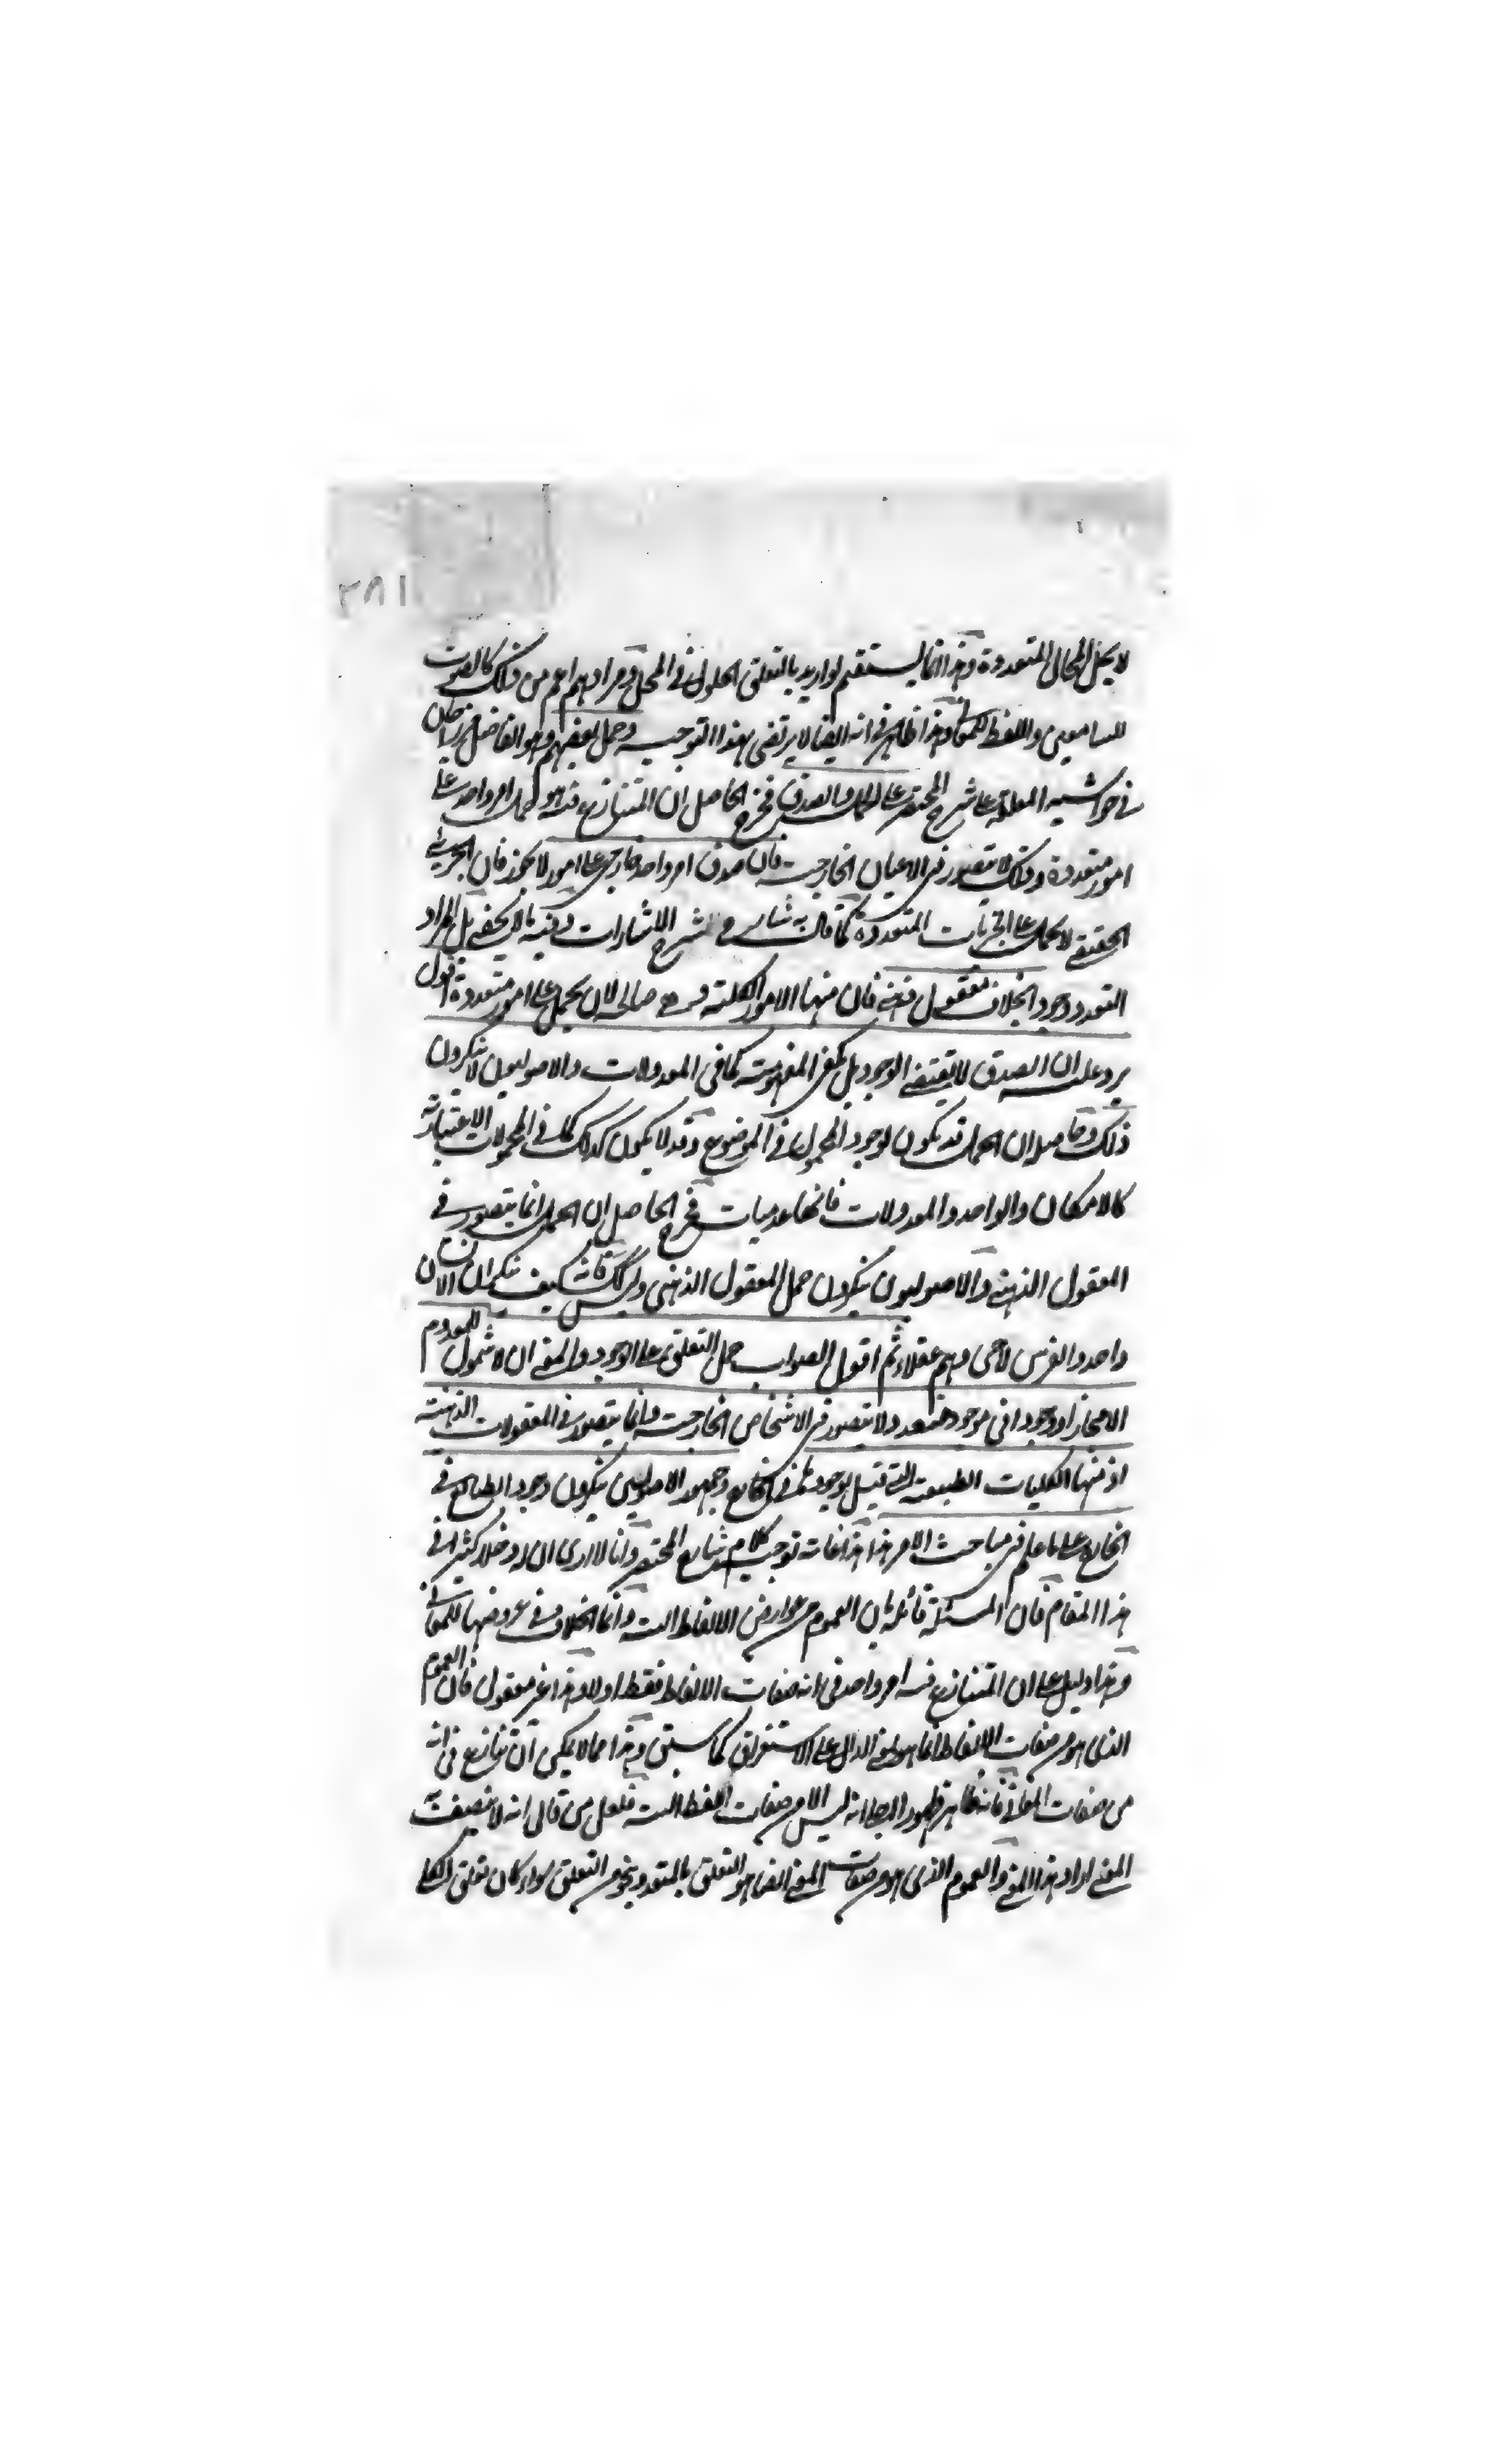 ٣٨١
لا يحل المحال المتعددة وهذا انما يستقيم لو اريد بالتعلق الحلول في المحل ومرادهم اعم من ذلك كالصوت
للسامعين واللفظ للمعاني وهذا ظاهر في انه ايضا لا يرتضي بهذا التوجيه وحمل بعضهم وهو الفاضل ميرزا جان
في حواشيه المعلقة على شرح المختصر على الحمل والصدق فخرج الحاصل ان المتنازع فيه هو حمل امر واحد على
امور متعددة وذلك لا يتصور في الاعيان الخارجية فان صدق امر واحد خارجي على امور لا يجوز فان الجزئي
الحقيقي لا يحمل على الجزئيات المتعددة كما قال به شارح شرح الاشارات وفيه ما لا يخفى بل المراد
التعدد وجودا بخلاف معقول ذهني فان منها الامور الكلية وهي صالحة لان يحمل على امور متعددة اقول
يرد عليه ان الصدق لا يقتضي الوجود بل يكفي المفهومية كما في المعدولات والاصوليون لا ينكرون
ذلك وحاصله ان الحمل قد يكون لوجود المحمول في الموضوع وقد لا يكون كذلك كما في المحمولات الاعتبارية
كالامكان والواحد والمعدولات فانها عدميات فخرج الحاصل ان الحمل انما يتصور في
المعقول الذهني والاصوليون ينكرون حمل المعقول الذهني وليس كذلك فانه كيف ينكرون ان الانسان
واحد والفرس لا حي وهم عقلاء ثم اقول الصواب حمل التعلق على الوجود والمعنى ان لا شمول للمعدوم
الا مجازا ووجود في موجود متعدد لا يتصور في الاشخاص الخارجية وانما يتصور في المعقولات الذهنية
اذ منها الكليات الطبيعية التي قيل بوجودها في الخارج وجمهور الاصوليين ينكرون وجود الطبائع في
الخارج على ما علم في مباحث الامر هذا غاية توجيه كلام شارح المختصر وانا لا ادري ان له دخلا كثيرا في
هذا المقام فان المسئلة قائلة بان العموم من عوارض الالفاظ البتة وانما الخلاف في عروضها للمعاني
وهذا دليل على ان المتنازع فيه امر واحد في انه صفات الالفاظ فقط اولا وهذا غير معقول فان العموم
الذي هو من صفات الالفاظ انما هو بمعنى الدال على الاستغراق كما سبق وهذا مما لا يمكن ان تنازع في انه
من صفات المعاني فانه ظاهر ظهورا جليا انه ليس الا من صفات اللفظ البتة فلعل من قال انه لا يتصف به
المعنى اراد هذا المعنى والعموم الذي هو من صفات المعنى ايضا هو التعلق بالمتعدد بنحو من التعلق سواء كان تعلق الكلي